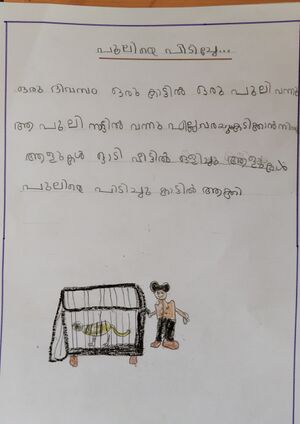 പുലിയെ പിടിച്ചേ...
ഒരു ദിവസം ഒരു കാട്ടിൽ ഒരു പുലി വന്നു
ആ പുലി നാട്ടിൽ വന്നു
ആളുകൾ ഓടി വീട്ടിൽ ഒളിച്ചു ആളുകൾ
പുലിയെ പിടിച്ചു കാട്ടിൽ ആക്കി